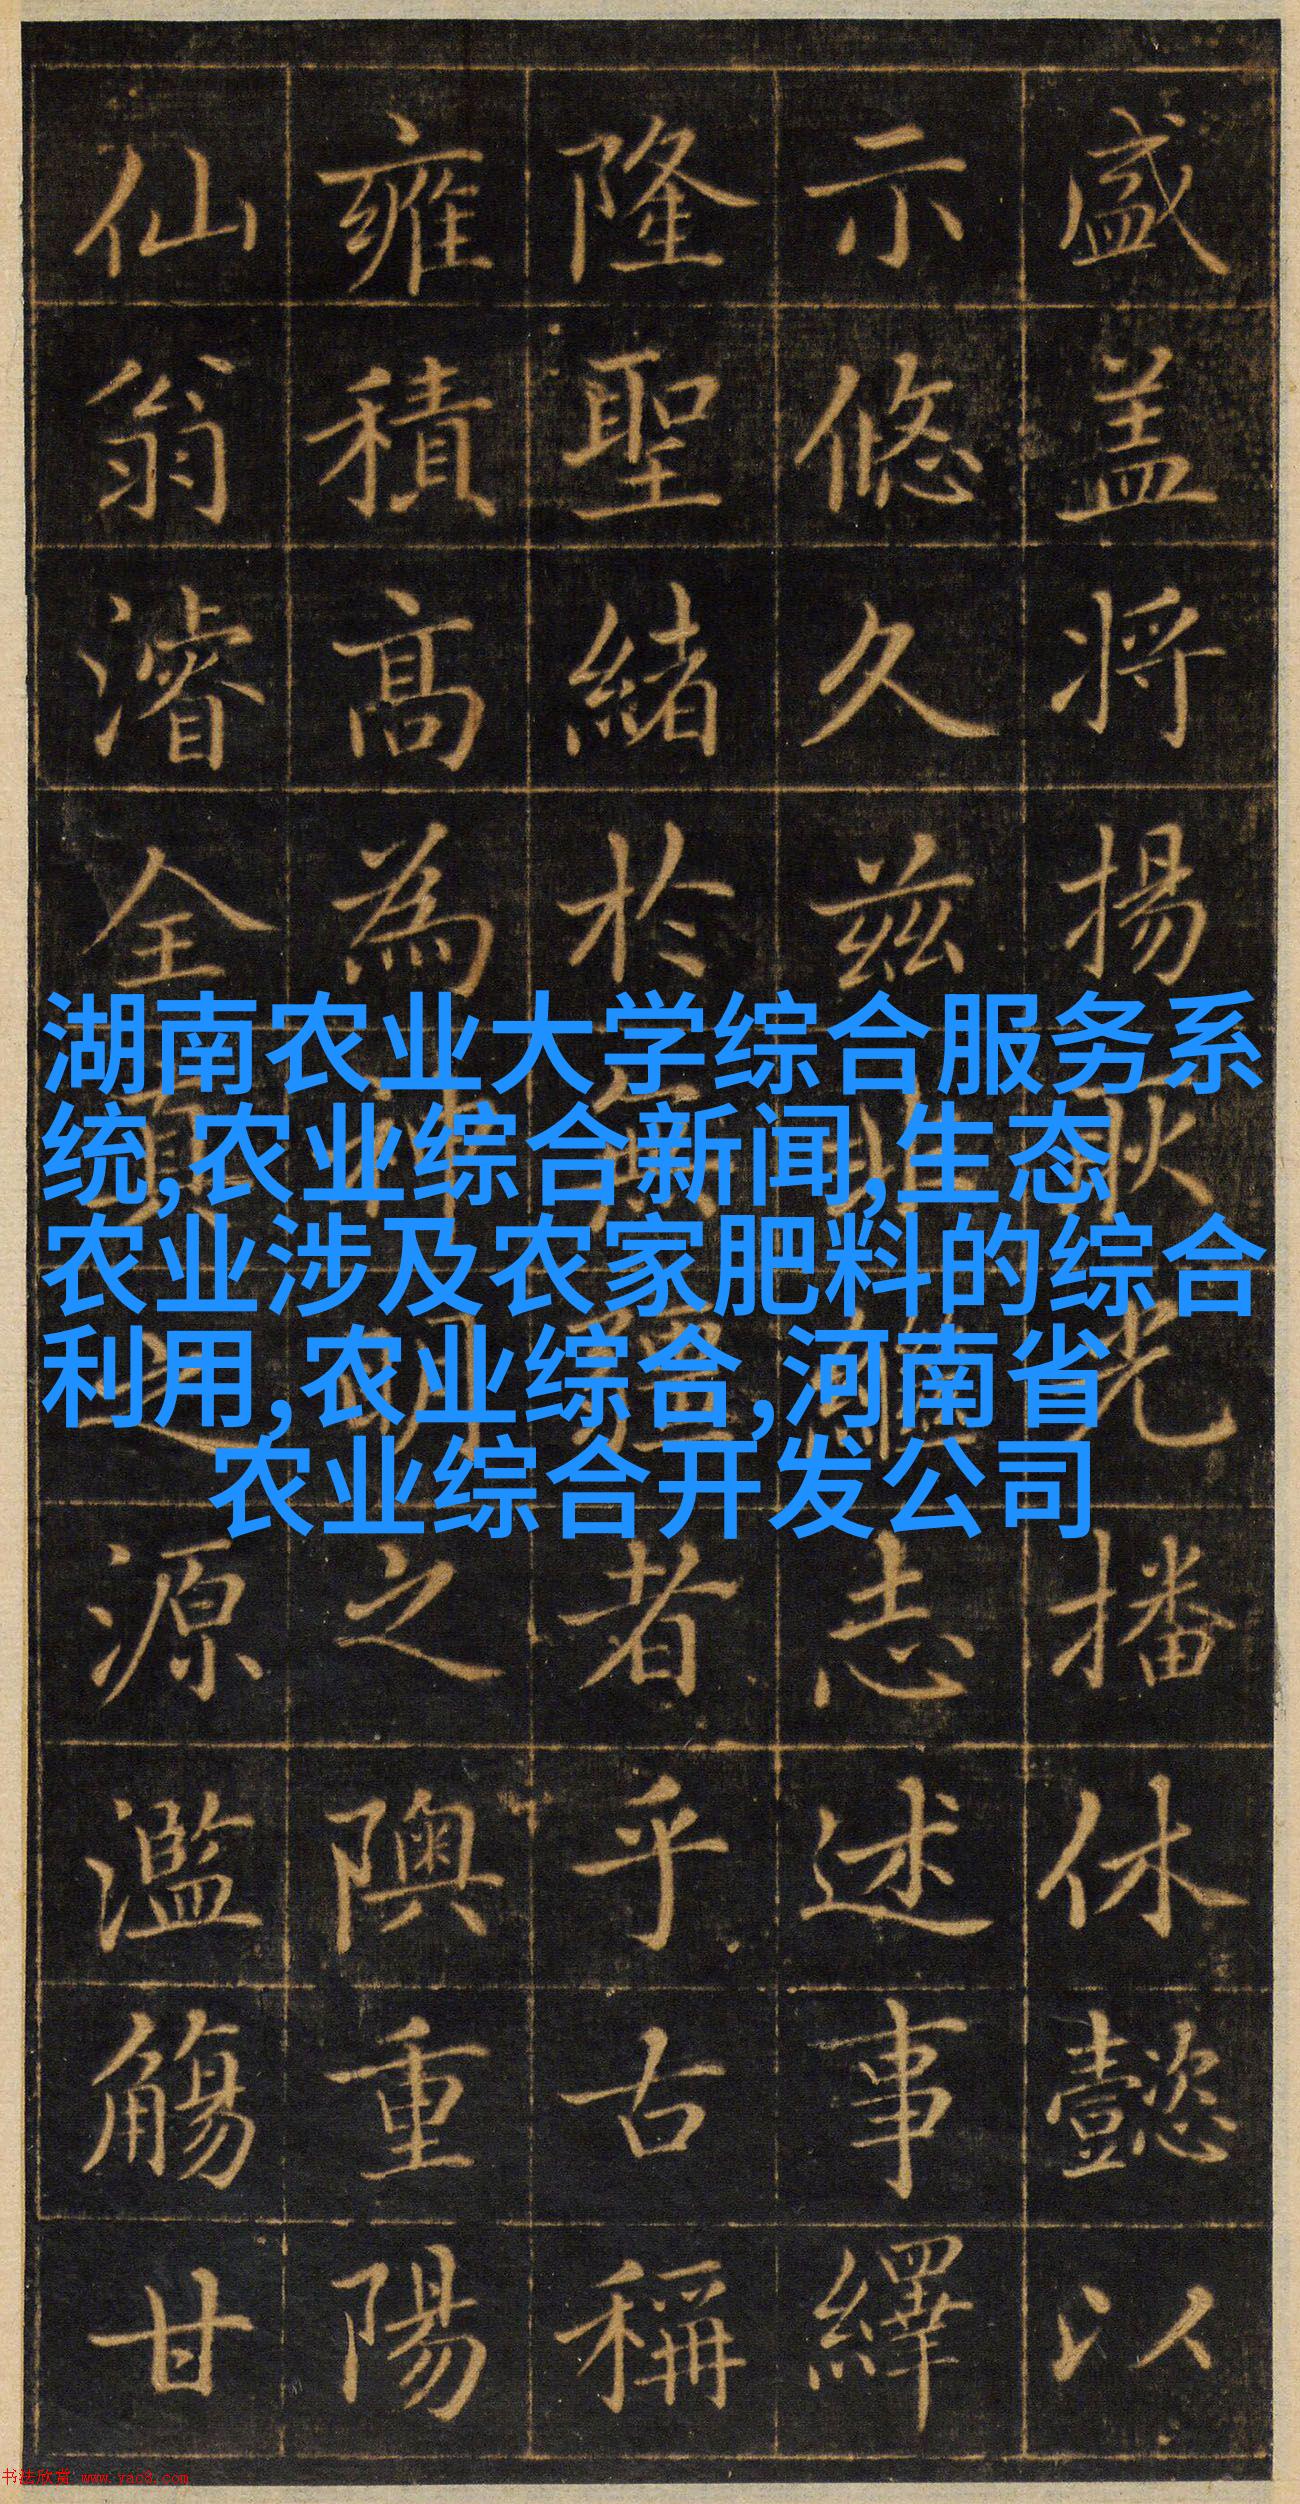 盛盖将揚耿光播休懿以
示悠久兹志述事繹
隆聖緒於無疆者乎古稱
雍積高為神明之隩重陽
仙翁濬全真之源濫觴甘
湖南农业大学综合服务系
统,农业综合新闻,生态
农业涉及农家肥料的综合
利用,农业综合,河南省
农业综合开发公司
书法欣赏 www.yac8.com